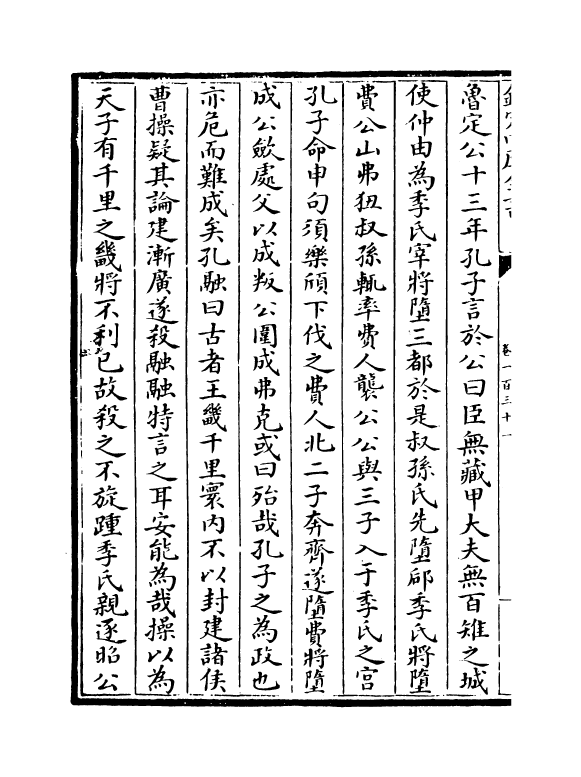 魯定公十三年孔子言於公曰臣無藏甲大夫無百雉之城
使仲由為季氏宰將墮三都於是叔孫氏先墮郈季氏將墮
費公山弗狃叔孫輒率費人襲公公與三子入于季氏之宮
孔子命申句須樂頎下伐之費人北二子奔齊遂墮費將墮
成公斂處父以成叛公圍成弗克或曰殆哉孔子之為政也
亦危而難成矣孔融曰古者王畿千里寰内不以封建諸侯
曹操疑其論建漸廣遂殺融融特言之耳安能為哉操以為
天子有千里之畿將不利已故殺之不旋踵季氏親逐昭公
卷一百三十一